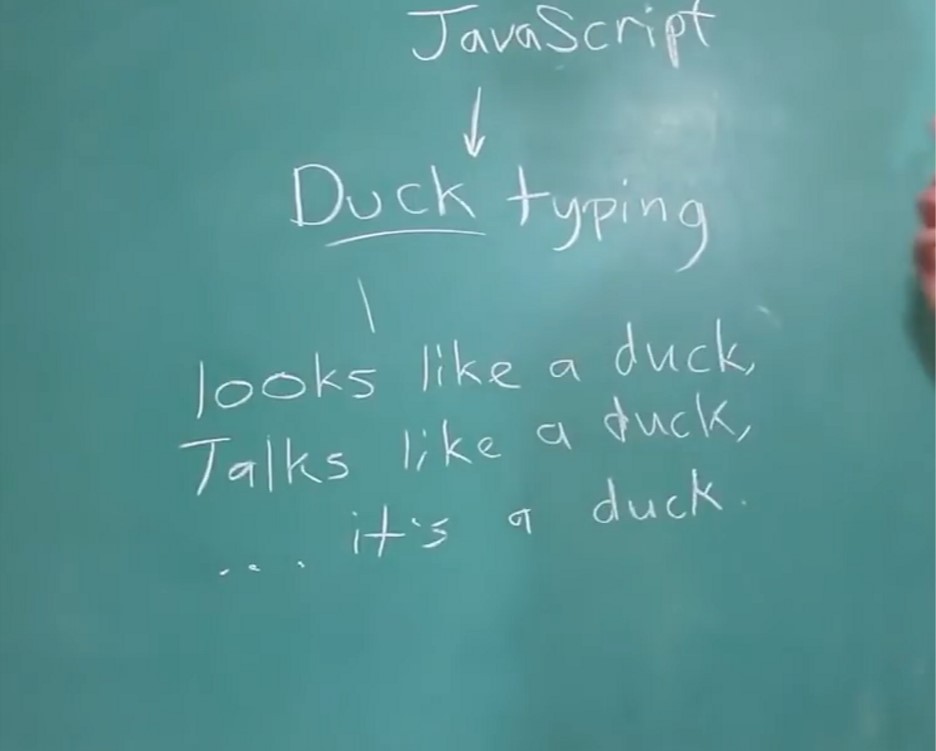 JavaScript
Duck typing
looks like a duck,
Talks like a duck,
.... it's a duck.